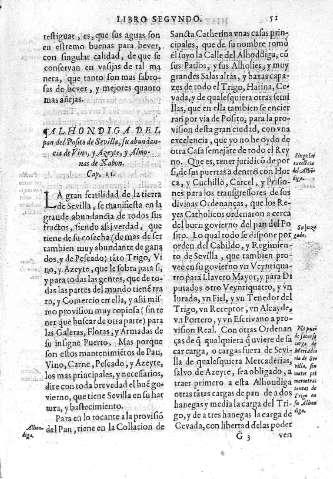 LIBRO SEGVNDO. 51
testiguar, es, que sus aguas son
en estremo buenas para bever,
con singular calidad, de que se
conservan en vasijas de tal ma
nera, que tanto son mas sabro-
sas de bever, y mejores quanto
mas añejas.
ALHONDIGA DEL
pan del Posito de Sevilla, su abundan
cia de Vino, y Azeyte, y Almo-
nas de Xabon.
Cap. 11.
LA gran fertilidad de la tierra
de Sevilla, se manifiesta en la
grande abundancia de todos sus
fructos, siendo assi verdad, que
tiene de su cosecha, de mas de ser
tambien muy abundante de gana
dos, y de Pescado; tãto Trigo, Vi
no, y Azeyte, que le sobra para si,
y para todas las gentes, que de to-
das las partes del mundo tienē tra
to, y Comercio en ella, y assi mis-
mo provision muy copiosa (sin te
ner que buscar de otra parte) para
las Galeras, Flotas, y Armadas de
su insigne Puerto. Mas porque
son estos mantenimiētos de Pan,
Vino, Carne, Pescado, y Azeyte,
los mas principales, y necessarios,
dire con toda brevedad el buē go-
vierno, que tiene Sevilla en su har
tura, y bastecimiento.
Para en lo tocante a la provisiō
del Pan, tiene en la Collacion de
Alhon-
diga.
Sancta Catherina vnas casas prin-
cipales, que de su nombre tomó
el suyo la Calle del Alhondiga, có
sus Patios, y sus Alholies, y muy
grandes Salas altas, y baxas capa-
zes de todo el Trigo, Harina, Ce-
vada, y de qualesquiera otras semi
llas, que en ella tambien se encier-
ras por via de Posito, para la pro
vision desta gran ciudad, con vna
excelencia, que yo no he oydo de
otra Casa semejante de todo el Rey
no. Que es, tener juridicō de por
si, de sus puertas a dentro con Hor
ca, y Cuchillo, Carcel, y Prisio-
nes para los transgressores de sus
divinas Ordenanças, que los Re-
yes Catholicos ordenaron a cerca
del buen govierno del pan del Po
sito. Lo qual todo se dispone por
orden del Cabildo, y Regimien-
to de Sevilla, que tambien pro-
vee en su govierno vn Veyntiqua-
tro para Llavero Mayor, y para Di
putados otro Veyntiquatro, y vn
Iurado, vn Fiel, y vn Tenedor del
Trigo, vn Receptor, vn Alcayde,
vn Portero, y vn Escrivano a pro-
vision Real. Con otras Ordenan
ças de q̃ qualquiera q̃ uviere de sa
car carga, o cargas fuera de Sevi-
lla de qualesquiera Mercaderias,
salvo de Azeyte, sea obligado, a
traer primero a esta Alhondiga
otras tãtas cargas de pan de a dos
hanegas y media la carga del Tri-
go, y de a tres hanegas la carga de
Cevada, con libertad de las poder
Su juzgado.
G 3 ven